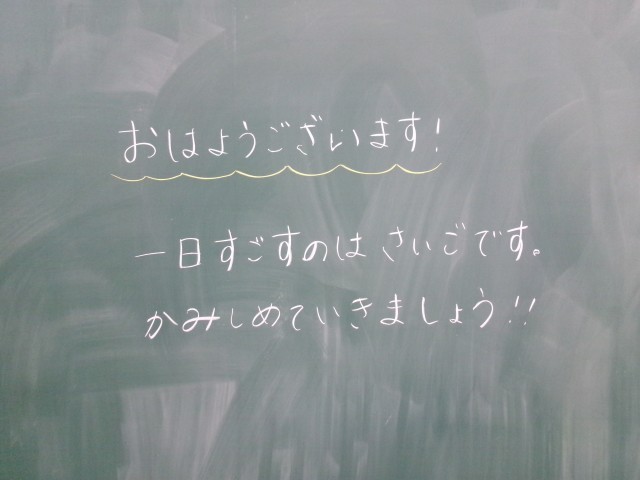 おはようございます!
一日すごすのは さいごです。
かみしめていきましょう!!